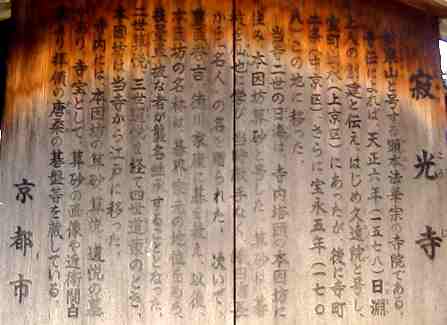 寂光寺
山と号する顕本法華宗の寺院である。
寺伝によれば、天正六年(一五七八)日淵
上人の創建と伝え、はじめ久遠院と号し、
室町 (上京区)にあったが、後に寺町
二条(中京区)、さらに宝永五年(一七〇
八)この地に移った。
当寺二世の日海は、寺内塔頭の本因坊に
住み、本因坊算砂と号した。算砂は、碁
から「名人」の名を贈られた。次いで、
豊臣秀吉、徳川家康に碁を教え、以後、
本因坊の名称は、碁界家元の地位を
技量 な者が襲名継承することとなった。
二世算悦、三世道悦を経て四世道策のとき、
本因坊は当寺から江戸に移った。
寺内には、本因坊の算砂、算悦、道悦の墓
があり、寺宝として、算砂の画像や近衛関白
拝領の唐桑の碁盤等を蔵している。
京都市